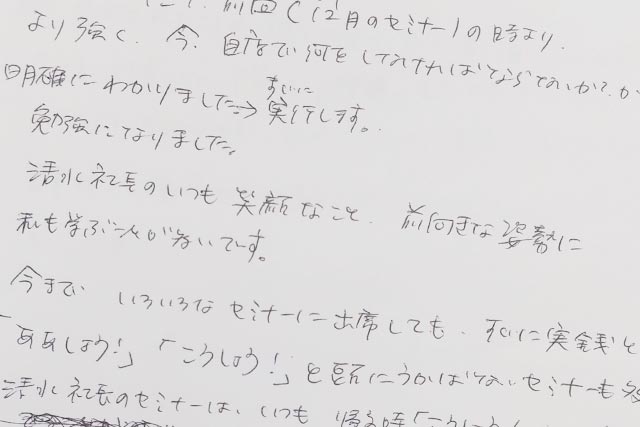 前回(12月のセミナー)の時より、
より強く、今、自店で何をしなければならないか?が
明確にわかりました→すぐに実行します。
勉強になりました。
清水社長のいつも笑顔なこと、前向きな姿勢に
私も学ぶことが多いです。
今まで いろいろなセミナーに出席しても、すぐに実践と
「ああしよう!」「こうしよう!」と頭にうかばないセミナーも多
清水社長のセミナーは、いつも 帰る時「こうしよう